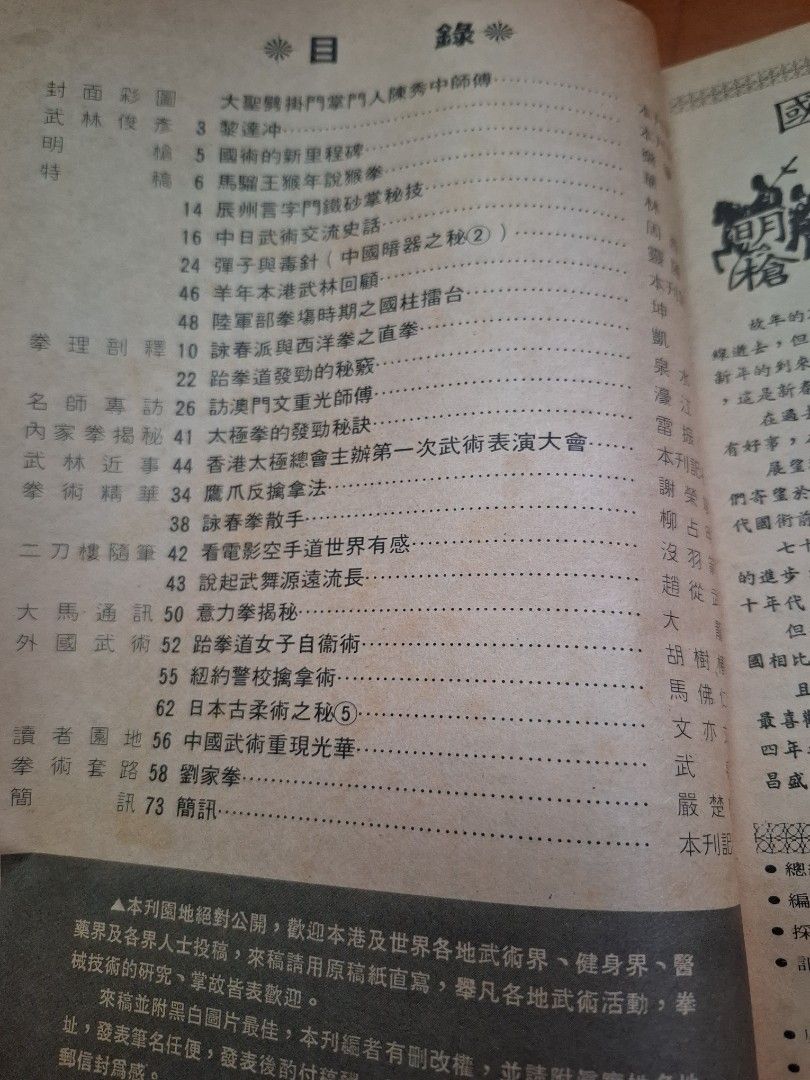 目錄
封面彩圖 大聖劈掛門掌門人陳秀中師傅
武林俊彥 3 黎達冲
明槍 5 國術的新里程碑
特稿 6 馬騮王猴年說猴拳
14 辰州言字門鐵砂掌秘技
16 中日武術交流史話
24 彈子與毒針(中國暗器之秘②)
46 羊年本港武林回顧
48 陸軍部拳塲時期之國柱擂台
拳理剖釋 10 詠春派與西洋拳之直拳
22 跆拳道發勁的秘竅
名師專訪 26 訪澳門文重光師傅
內家拳揭秘 41 太極拳的發勁秘訣
武林近事 44 香港太極總會主辦第一次武術表演大會 本刊記
拳術精華 34 鷹爪反擒拿法 謝榮
38 詠春拳散手 柳占
二刀樓隨筆 42 看電影空手道世界有感 沒羽
43 說起武舞源遠流長 趙從武
大馬通訊 50 意力拳揭秘 大
外國武術 52 跆拳道女子自衞術 胡樹
55 紐約警校擒拿術 馬佛仁
62 日本古柔術之秘⑤ 文亦
讀者園地 56 中國武術重現光華 武
拳術套路 58 劉家拳 嚴楚
簡訊 73 簡訊 本刊記
▲本刊園地絕對公開，歡迎本港及世界各地武術界、健身界、醫
藥界及各界人士投稿，來稿請用原稿紙直寫，舉凡各地武術活動，拳
械技術的研究、掌故皆表歡迎。
來稿並附黑白圖片最佳，本刊編者有刪改權，並請附
址，發表筆名任便，發表後酌付稿
郵信封爲感。
國
明槍
線逝去，但
新年的到來
，這是新春
在過去
有好事，
展望
們寄望於
代國術前
七十
的進步
十年代
但
國相比
且
最喜歡
四年
昌盛
● 總
● 編
● 採